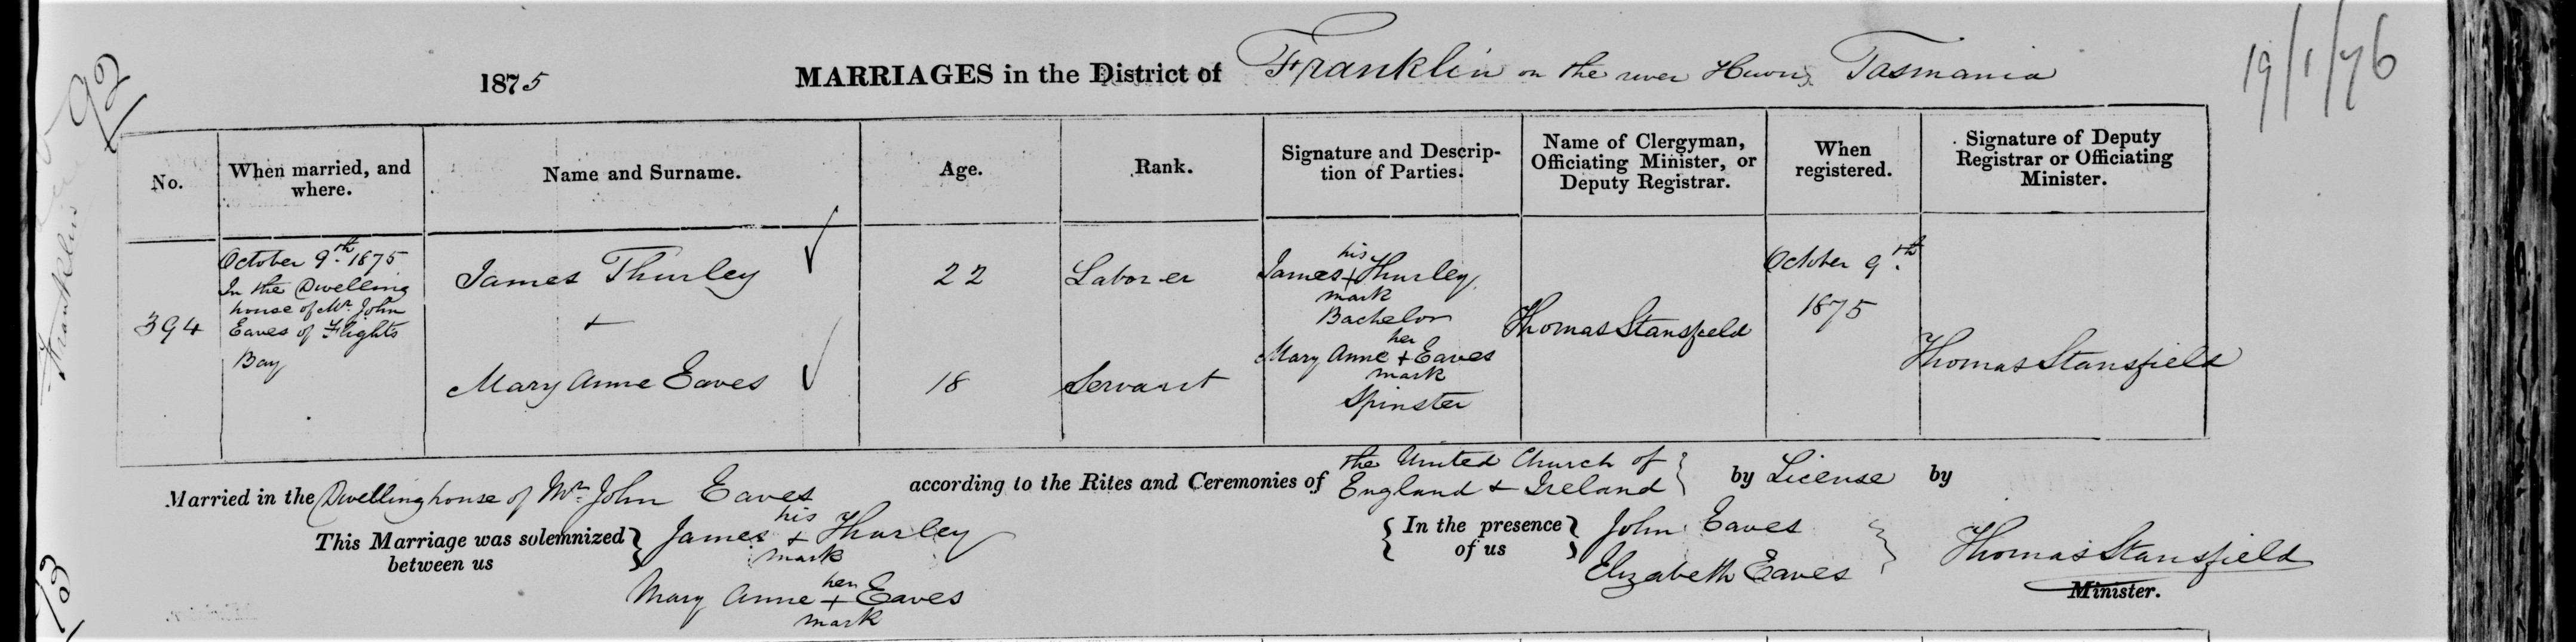 92
19/1/76
1875 MARRIAGES in the District of Franklin on the river Huon, Tasmania
No.
When married, and
where.
Name and Surname.
Age.
Rank.
Signature and Descrip-
tion of Parties.
Name of Clergyman,
Officiating Minister, or
Deputy Registrar.
When
registered.
Signature of Deputy
Registrar or Officiating
Minister.
394
October 9th 1875
In the Dwelling
house of Mr. John
Eaves of Flights
Bay
James Thurley
+
Mary Anne Eaves
22
18
Laborer
Servant
his
James + Thurley
mark
Bachelor
her
Mary Anne + Eaves
mark
Spinster
Thomas Stansfield
October 9th
1875
Thomas Stansfield
Married in the Dwelling house of Mr. John Eaves according to the Rites and Ceremonies of the United Church of
England & Ireland } by License by
This Marriage was solemnized
between us
his
James + Thurley
mark
her
Mary Anne + Eaves
mark
In the presence
of us
John Eaves
Elizabeth Eaves
Thomas Stansfield
Minister.
Franklin
93